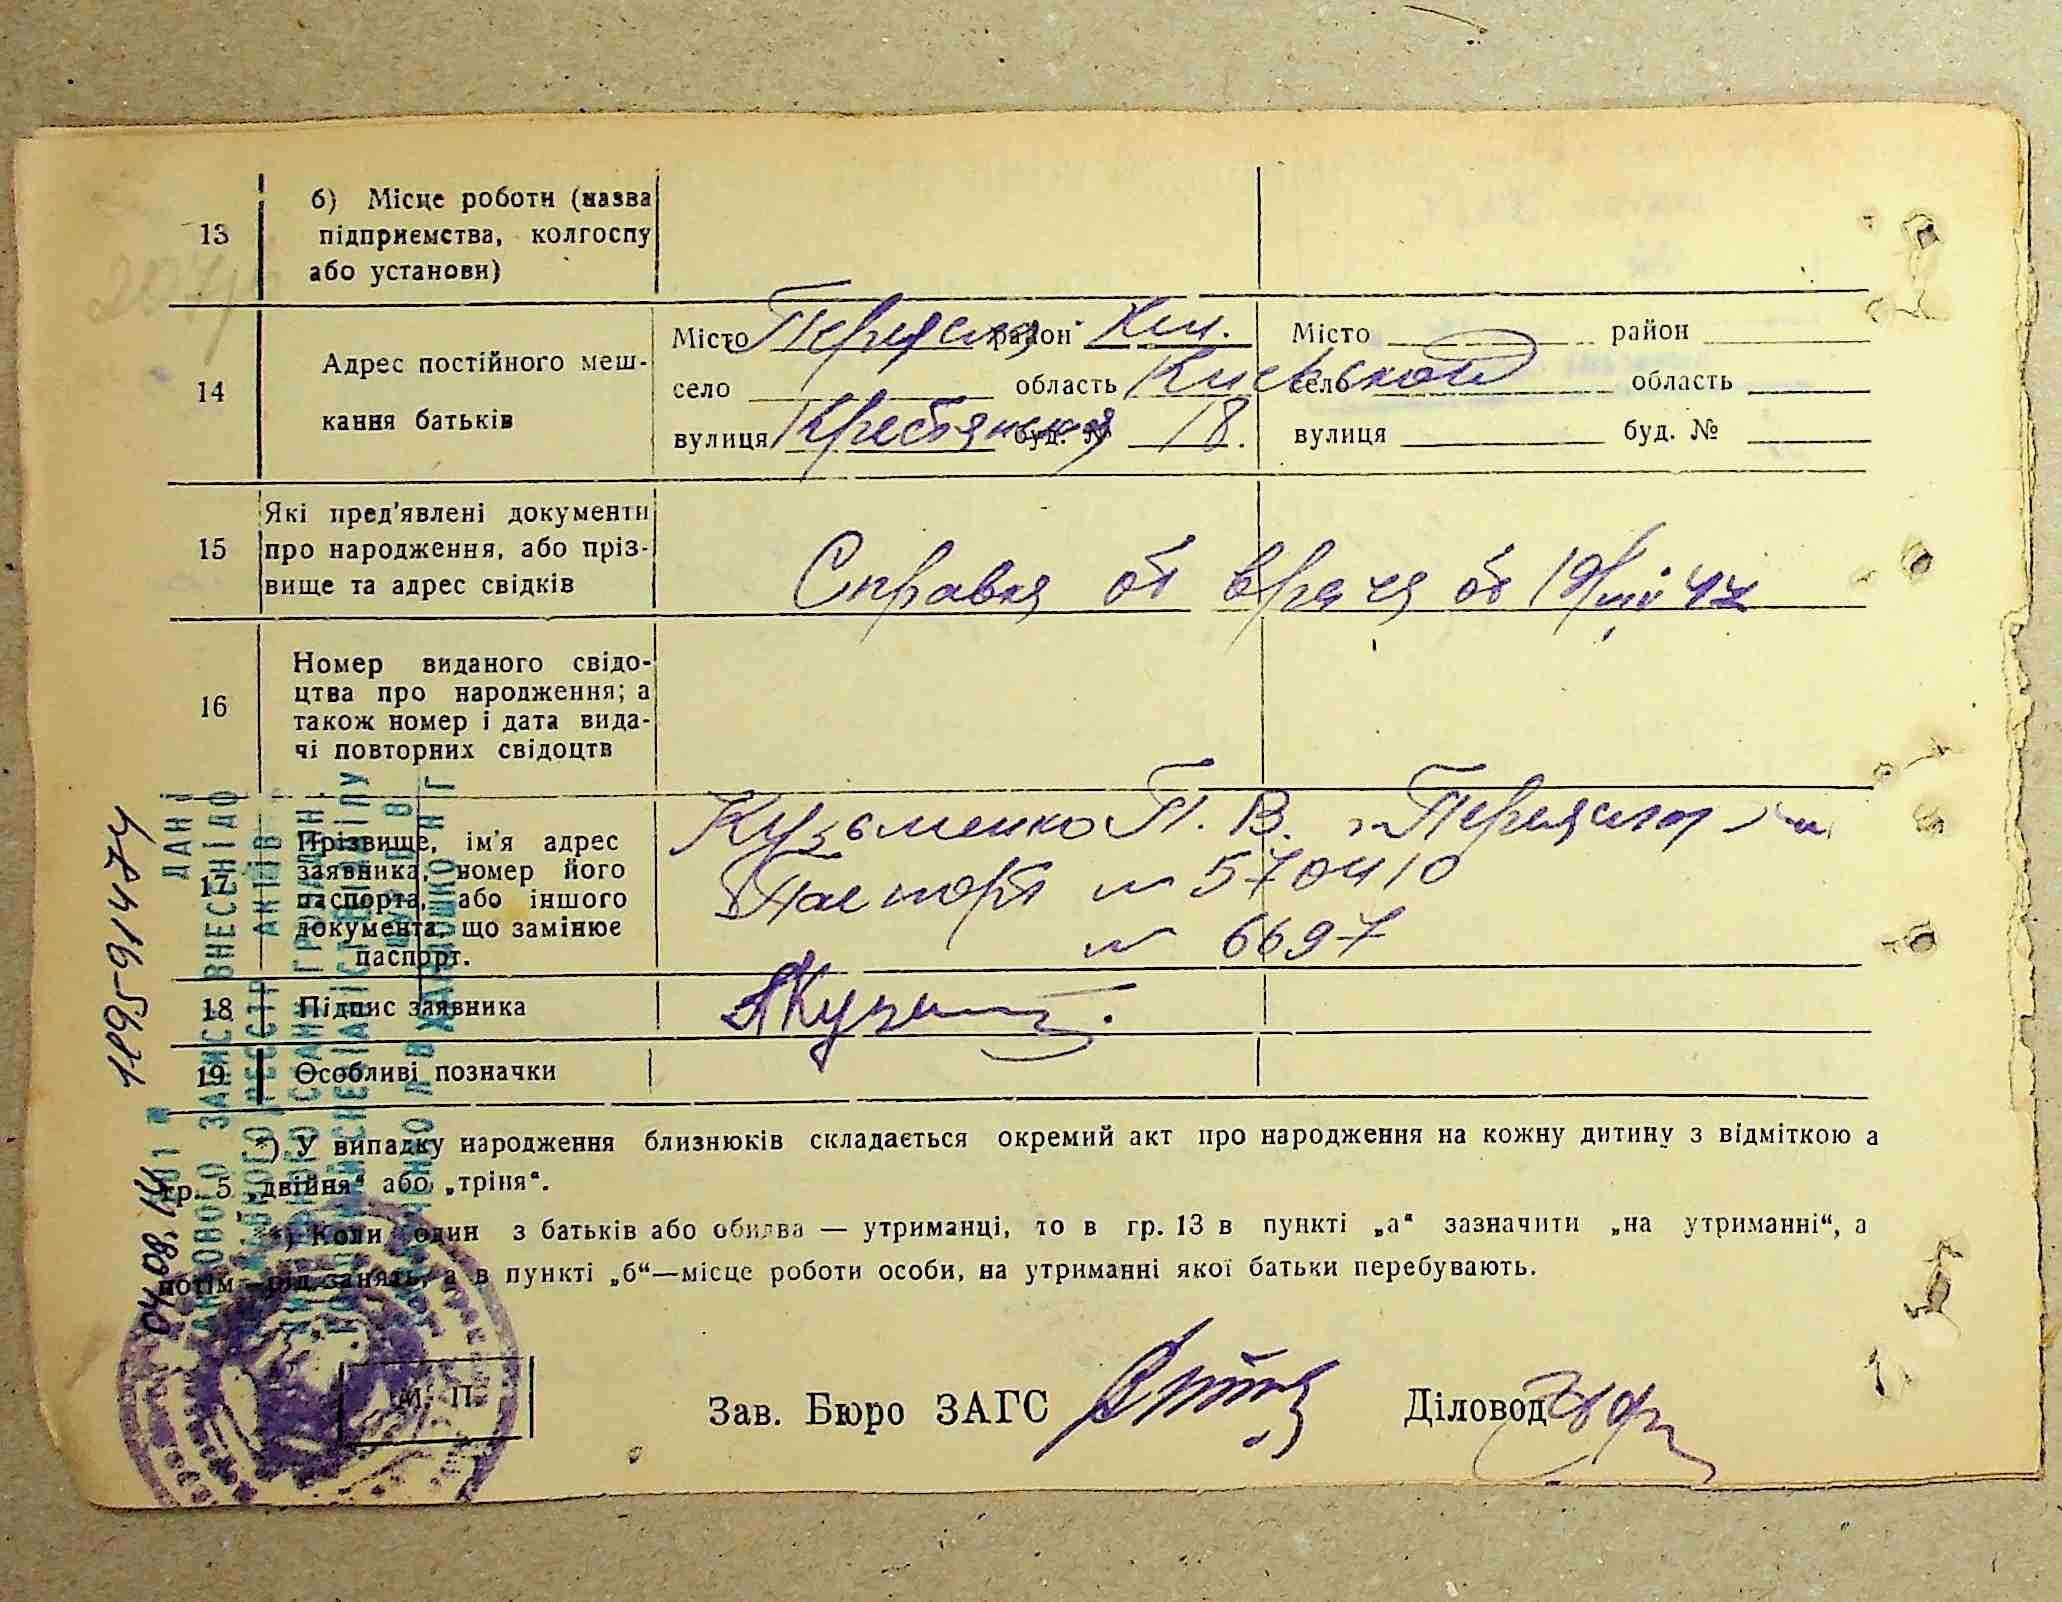 13
б) Місце роботи (назва
підприємства, колгоспу
або установи)
14
Адрес постійного меш-
кання батьків
Місто Переяслав район Хм.
село область Киевской
вулиця Крестянская буд. № 18.
Місто район
село область
вулиця буд. №
15
Які пред'явлені документи
про народження, або пріз-
вище та адрес свідків
Справка от врача от 19/VIII 47
16
Номер виданого свідо-
цтва про народження; а
також номер і дата вида-
чі повторних свідоцтв
17
Прізвище, ім'я адрес
заявника, номер його
паспорта, або іншого
документа, що замінює
паспорт.
Кузьменко П. В. г. Переяслав
Паспорт № 570410
№ 6697
18
Підпис заявника
19
Особливі позначки
*) У випадку народження близнюків складається окремий акт про народження на кожну дитину з відміткою а
гр. 5 „двійня“ або „трійня“.
*) Коли один з батьків або обидва — утриманці, то в гр. 13 в пункті „а“ зазначити „на утриманні“, а
потім—рід занять, а в пункті „б“—місце роботи особи, на утриманні якої батьки перебувають.
М. П.
Зав. Бюро ЗАГС
Діловод
ДАНІ
ВНЕСЕНІ ДО
04.08.14